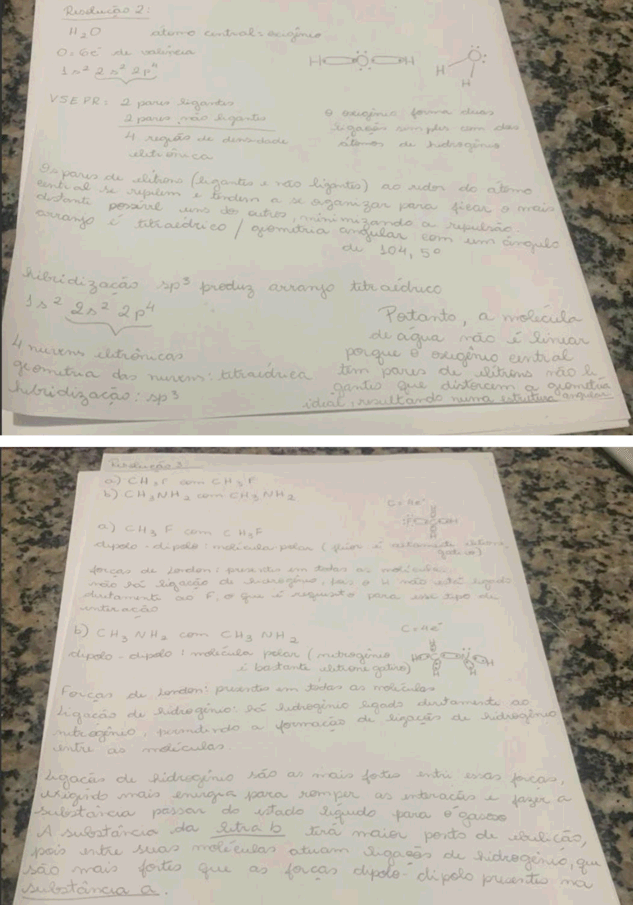 Resolução 2:
H₂O átomo central: oxigênio
O: 6e⁻ de valência
1s² 2s² 2p⁴
H O H
O
H H
VSEPR: 2 pares ligantes
2 pares não ligantes
4 região de densidade
eletrônica
o oxigênio forma duas
ligações simples com dois
átomos de hidrogênio
Os pares de elétrons (ligantes e não ligantes) ao redor do átomo
central se repelem e tendem a se organizar para ficar o mais
distante possível uns dos outros, minimizando a repulsão
arranjo é tetraédrico / geometria angular com um ângulo
de 104,5º
hibridização sp³ produz arranjo tetraédrico
1s² 2s² 2p⁴
4 nuvens eletrônicas
geometria das nuvens: tetraédrica
hibridização: sp³
Portanto, a molécula
de água não é linear
porque o oxigênio central
tem pares de elétrons não li
gantes que distorcem a geometria
ideal, resultando numa estrutura angular
Resolução 3:
a) CH₃F com CH₃F
b) CH₃NH₂ com CH₃NH₂
C = 4e⁻
a) CH₃F com CH₃F
dipolo-dipolo: molécula polar (flúor é altamente eletrone
gativo)
forças de London: presentes em todas as moléculas
não há ligação de hidrogênio, pois o H não está ligado
diretamente ao F, o que é requisito para esse tipo de
interação
b) CH₃NH₂ com CH₃NH₂
C = 4e⁻
dipolo-dipolo: molécula polar (nitrogênio
é bastante eletronegativo)
Forças de London: presentes em todas as moléculas
Ligação de hidrogênio: há hidrogênio ligado diretamente ao
nitrogênio, permitindo a formação de ligações de hidrogênio
entre as moléculas.
Ligações de hidrogênio são as mais fortes entre essas forças,
exigindo mais energia para romper as interações e fazer a
substância passar do estado líquido para o gasoso
A substância da letra b terá maior ponto de ebulição,
pois entre suas moléculas atuam ligações de hidrogênio, que
são mais fortes que as forças dipolo-dipolo presentes na
substância a.